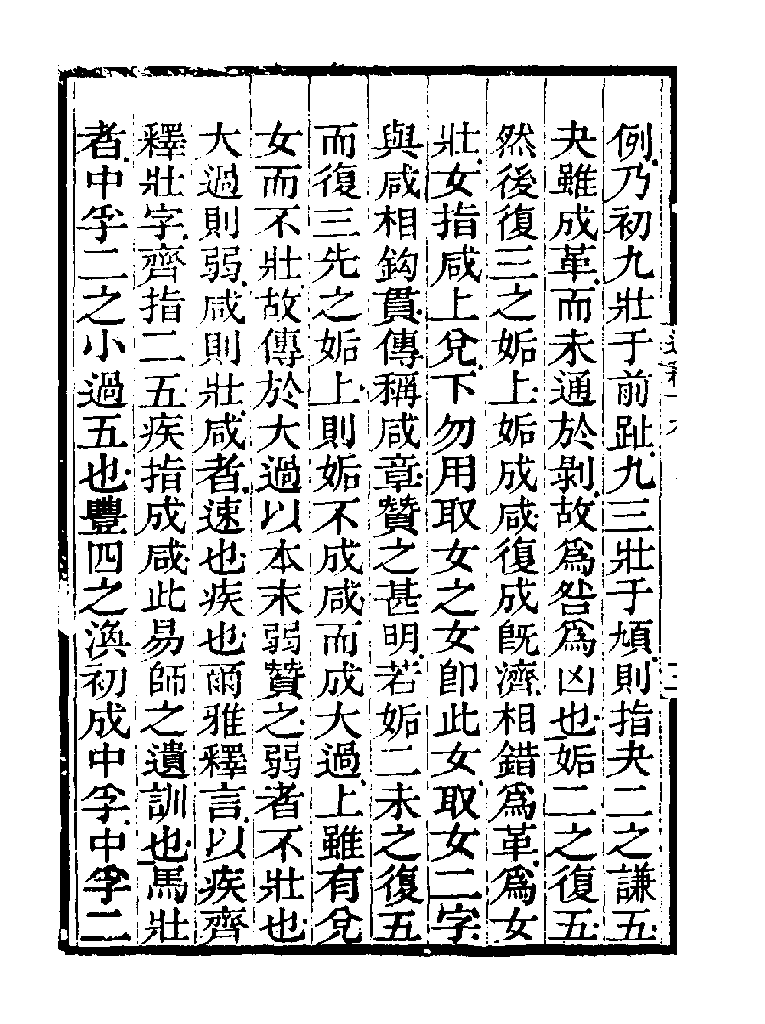 例乃初九壯于前趾九三壯于頄則指夬二之謙五
夬雖成革而未通於剝故爲咎爲凶也姤二之復五
然後復三之姤上姤成咸復成旣濟相錯爲革爲女
壯女指咸上兌下勿用取女之女卽此女取女二字
與咸相鈎貫傳稱咸章贊之甚明若姤二未之復五
而復三先之姤上則姤不成咸而成大過上雖有兌
女而不壯故傳於大過以本末弱贊之弱者不壯也
大過則弱咸則壯咸者速也疾也爾雅釋言以疾齊
釋壯字齊指二五疾指成咸此易師之遺訓也馬壯
者中孚二之小過五也豐四之渙初成中孚中孚二